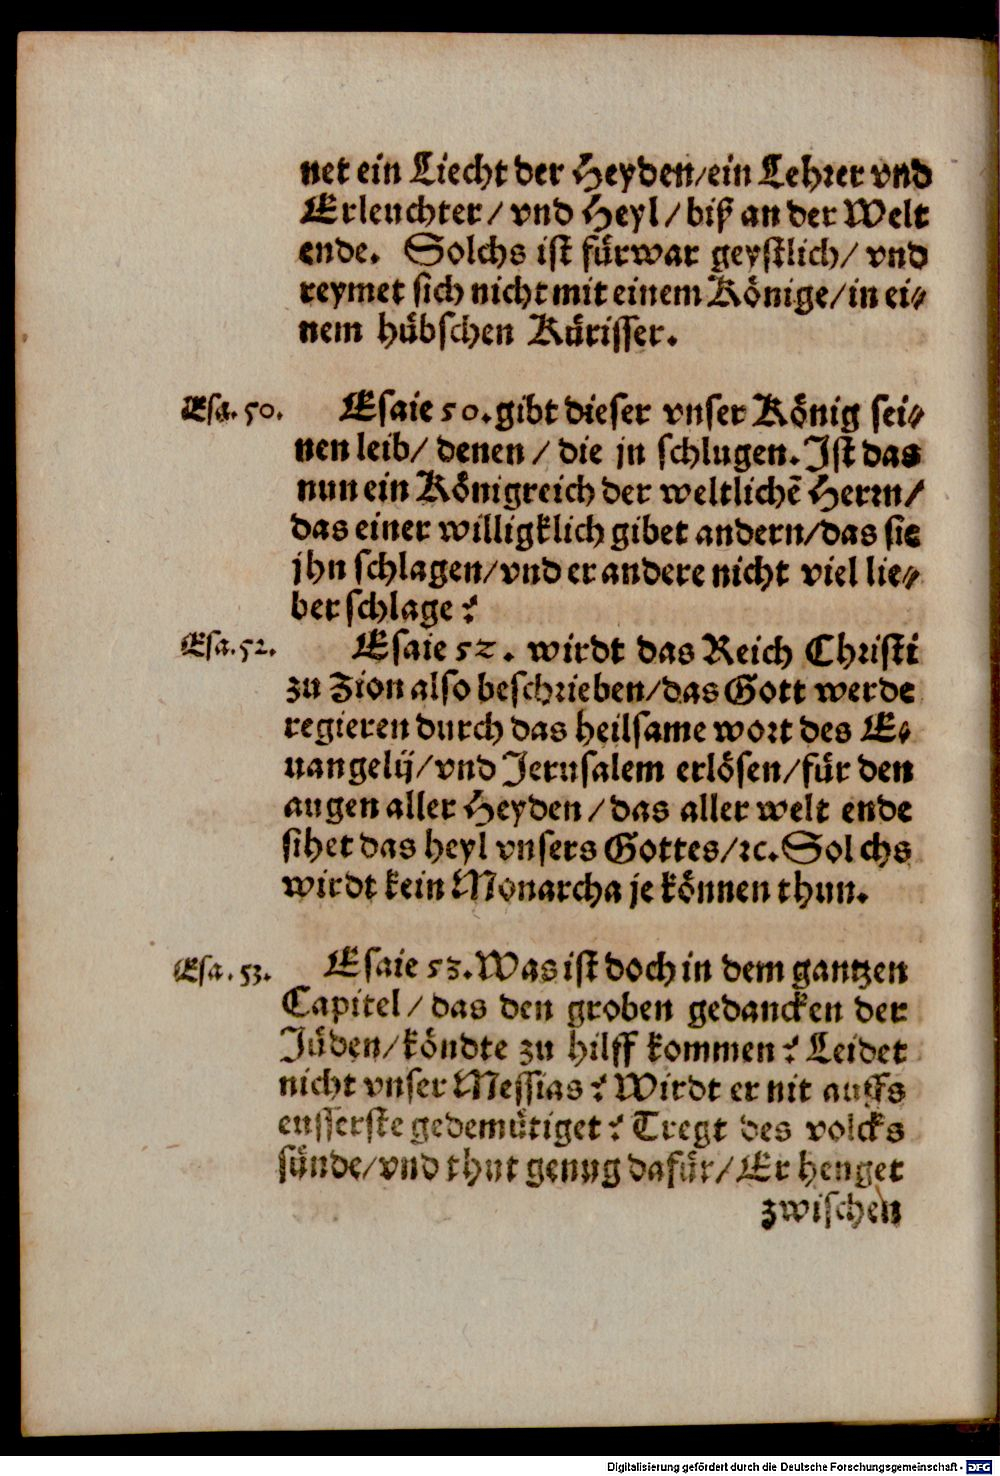 net ein Liecht der Heyden/ein Lehrer vnd
Erleuchter/ vnd Heyl/ biß an der Welt
ende. Solchs ist fürwar geystlich/ vnd
reymet sich nicht mit einem Könige/in ei⸗
nem hübschen Kürisser.
Esa. 50.
Esaie 50. gibt dieser vnser König sei⸗
nen leib/ denen / die jn schlugen. Ist das
nun ein Königreich der weltlichē Herrn/
das einer willigklich gibet andern/das sie
jhn schlagen/vnd er andere nicht viel lie⸗
ber schlage?
Esa. 52.
Esaie 52. wirdt das Reich Christi
zu Zion also beschrieben/das Gott werde
regieren durch das heilsame wort des E⸗
uangelij/vnd Jerusalem erlösen/für den
augen aller Heyden/das aller welt ende
sihet das heyl vnsers Gottes/ꝛc. Solchs
wirdt kein Monarcha je können thun.
Esa. 53.
Esaie 53. Was ist doch in dem gantzen
Capitel/ das den groben gedancken der
Jüden/köndte zu hilff kommen? Leidet
nicht vnser Messias? Wirdt er nit auffs
eusserste gedemütiget? Tregt des volcks
sünde/vnd thut genug dafür/Er henget
zwischen
Digitalisierung gefördert durch die Deutsche Forschungsgemeinschaft - DFG